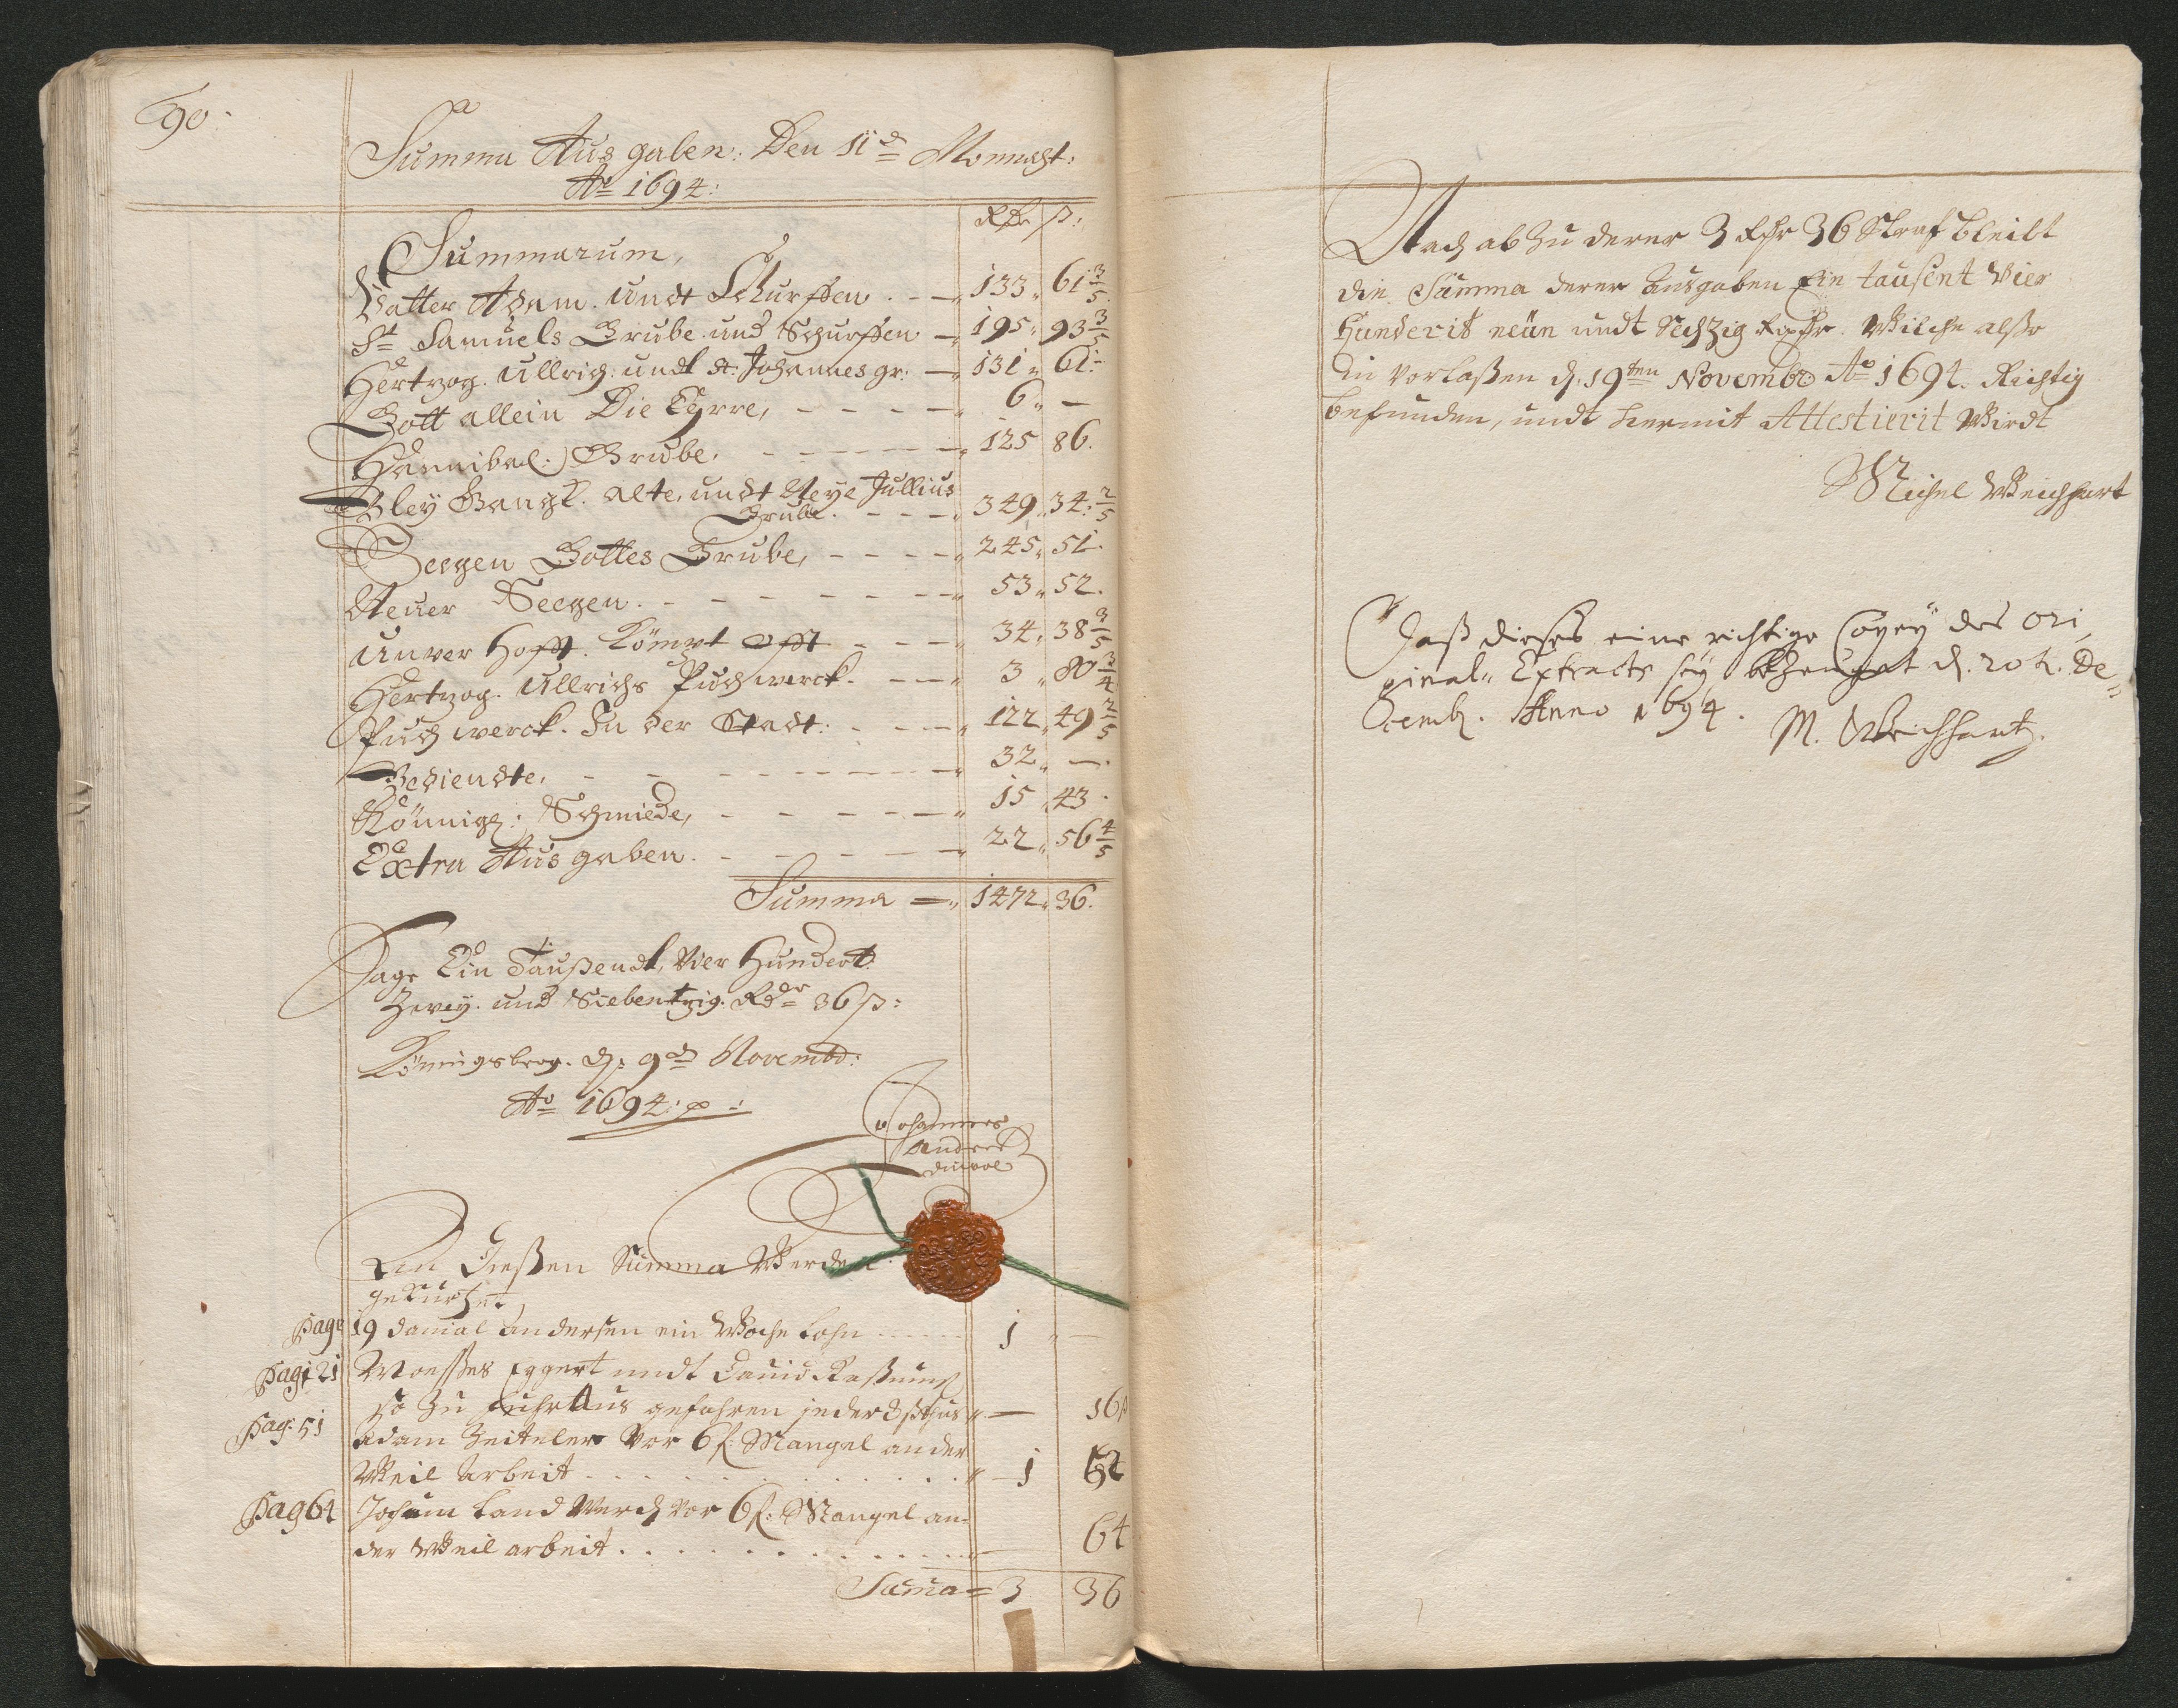 90:
Summa Ausgaben: Den 11d Monnaht:
Ao 1694:
Rdr ß:
Summarum,
Vatter Adam. undt Schurffen. — 133„ 61 3/5.
St Samuels Grube und Schurffen — 195„ 93 3/5
Hertzog. Ullrich: undt St: Johannes gr: — 131„ 61:
Gott allein Die Ehre, - - - - 6„ —
Hannibal: Grube. - - - - - 125 86.
Bley Gangk. alte. undt Neye Jullius
Grube. - - - - 349„ 34: 2/5
Seegen Gottes Grube, - - - - 245„ 51.
Neuer Seegen. - - - - - - - 53„ 52.
Unver Hofft. Kömpt Offt - - - 34„ 38 3/5
Hertzog. Ullrichs Puchwerck. - - - 3„ 80 3/4
Puch werck. In der Stadt: - - - - 122„ 49 2/5
Bediendte, - - - - - - - - 32„ —.
Könnigl: Schmiede, - - - - - - 15„ 43.
Extra Ausgaben. - - - - - 22„ 56 4/5
Summa —„ 1472„ 36.
Sage Ein Taußendt, Vier Hundert
Zwey. und Siebentzig. Rdr 36 ß:
Königsberg. d: 9d Novembr:
Ao 1694: p:
Johannes
Andree
An Dießen Summa Werden
gekürtzet,
Pag 19 Danial Andersen ein Woche Lohn ..... 1 „ —
Pag: 21 Moesses Eggert undt Dauid Raßmus
so zu fuhr Aus gefahren jeder 8 ß „ — 16 ß
Pag: 51 Adam Zeiteler Vor 6 f: Mangel an der
Weil Arbeit . . . . . . . . . . „ — 1 52
Pag 64 Jochim Land Werch vor 6 f: Mangel an
der Weil arbeit . . . . . . . . . . 64
Suma = 3 36
Nach abzu derer 3 Rthr 36 Straf bleibt
die Summa derer Ausgaben Ein tausent Vier
Hunderit neün undt Sechzig Rthr. Wilche alßo
in Vorlaßen d. 19ten Novembr Ao 1694. Richtig
befunden, undt hiermit Attestierit Wirdt
Michel Weichhart
Daß dieses eine richtige Copey des Ori„
ginal„ Extracts sey bezeuget d. 20 t. De„
cemb. Anno 1694.
M. Weichhart.